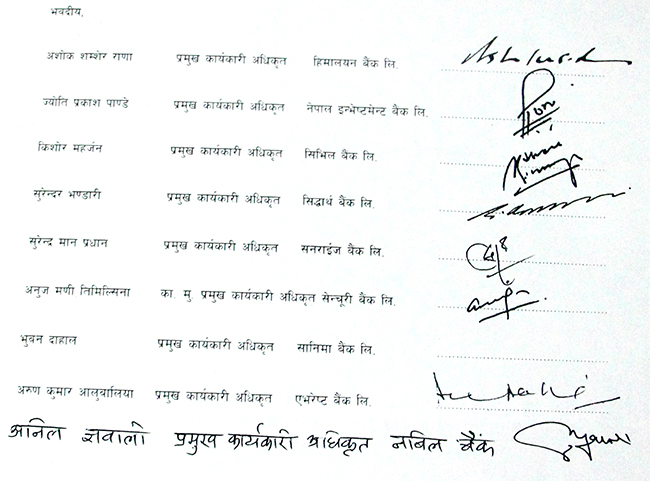 भवदीय,
अशोक शम्शेर राणा प्रमुख कार्यकारी अधिकृत हिमालयन बैंक लि.
ज्योति प्रकाश पाण्डे प्रमुख कार्यकारी अधिकृत नेपाल इन्भेष्टमेन्ट बैंक लि.
किशोर महर्जन प्रमुख कार्यकारी अधिकृत सिभिल बैंक लि.
सुरेन्दर भण्डारी प्रमुख कार्यकारी अधिकृत सिद्धार्थ बैंक लि.
सुरेन्द्र मान प्रधान प्रमुख कार्यकारी अधिकृत सनराईज बैंक लि.
अनुज मणी तिमिल्सिना का. मु. प्रमुख कार्यकारी अधिकृत सेन्चूरी बैंक लि.
भुबन दाहाल प्रमुख कार्यकारी अधिकृत सानिमा बैंक लि.
अरुण कुमार आलुवालिया प्रमुख कार्यकारी अधिकृत एभरेष्ट बैंक लि.
अनिल ज्ञवाली प्रमुख कार्यकारी अधिकृत नबिल बैंक